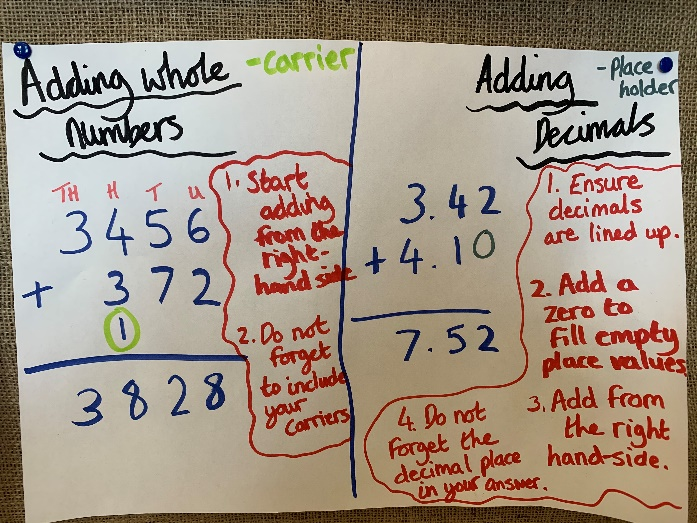 Adding whole
Numbers
-Carrier
TH H T U
3456
+ 372
1
3828
1. Start
adding
from the
right-
hand side
2. Do not
forget
to include
your
carriers
Adding
Decimals
-Place
holder
3.42
+ 4.10
7.52
1. Ensure
decimals
are lined up.
2. Add a
zero to
fill empty
place values
3. Add from
the right
hand-side.
4. Do not
forget the
decimal place
in your answer.